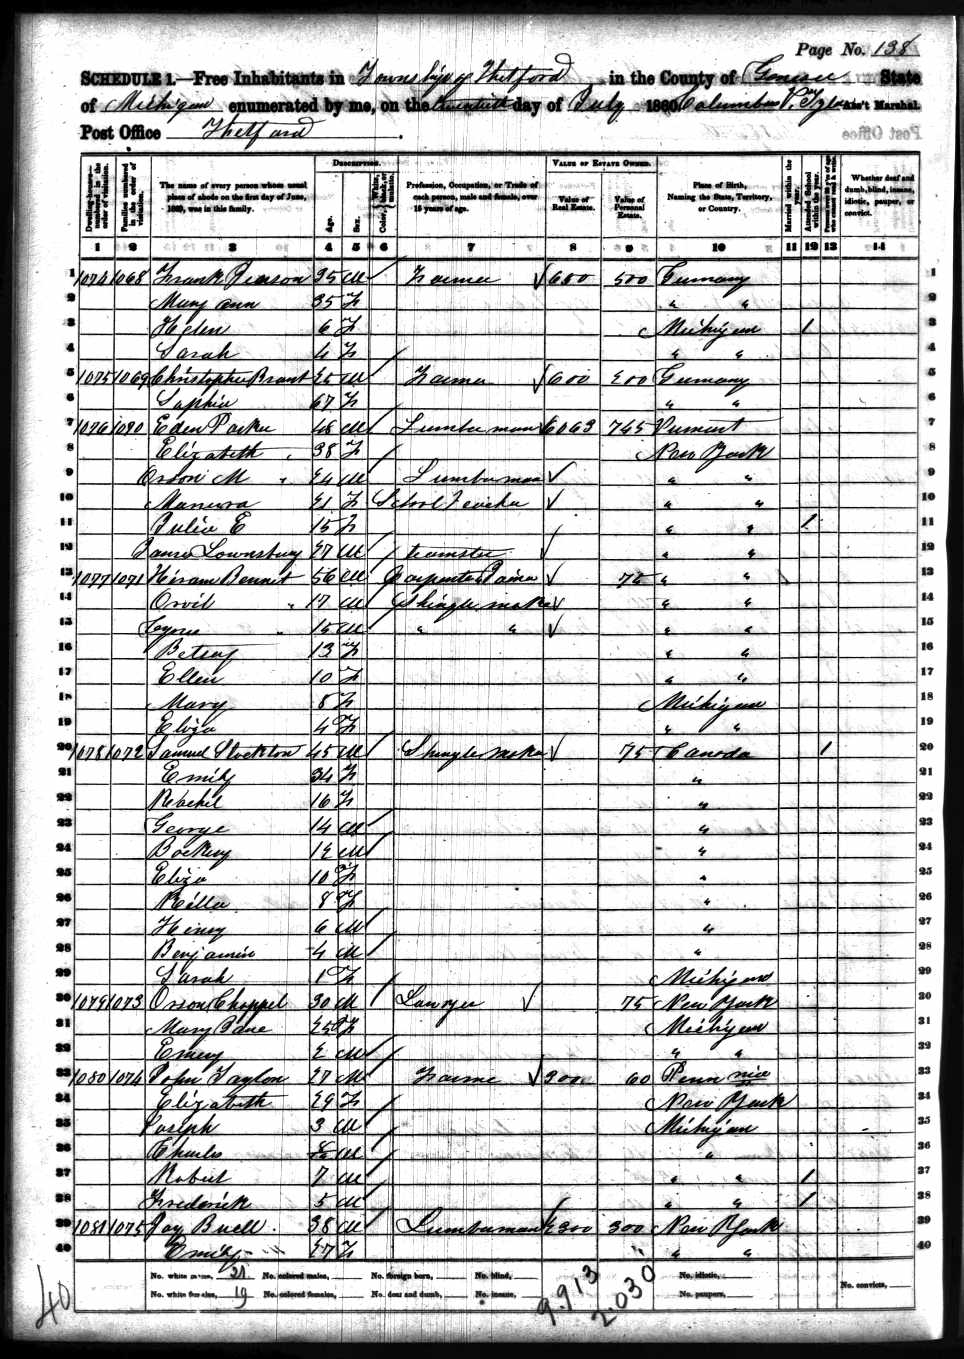 Page No. 138
SCHEDULE 1.—Free Inhabitants in Township of Thetford in the County of Genesee State
of Michigan enumerated by me, on the twentieth day of July 1860. Columbus V. Tyler Ass't Marshal.
Post Office Thetford
Dwelling-houses—numbered in the order of visitation. Families numbered in the order of visitation. The name of every person whose usual place of abode on the first day of June, 1860, was in this family. DESCRIPTION. Age. Sex. Color, White, black, or mulatto. Profession, Occupation, or Trade of each person, male and female, over 15 years of age. VALUE OF ESTATE OWNED. Value of Real Estate. Value of Personal Estate. Place of Birth, Naming the State, Territory, or Country. Married within the year. Attended School within the year. Persons over 20 y'rs of age who cannot read & write. Whether deaf and dumb, blind, insane, idiotic, pauper, or convict.
1 2 3 4 5 6 7 8 9 10 11 12 13 14
1 1074 1068 Frank Pierson 35 M / Farmer 600 500 Germany 1
2 Mary ann 35 F " " 2
3 Helen 6 F Michigan 1 3
4 Sarah 4 F " " 4
5 1075 1069 Christopher Brant M / Farmer 600 200 Germany 5
6 Sophia 67 F " " 6
7 1076 1090 Eden Parker 48 M / Lumberman 6063 745 Vermont 7
8 Elizabeth " 38 F New York 8
9 Orson M " 24 M / Lumberman " " 9
10 21 F School Teacher " " 10
11 Julia E 15 F " " 1 11
12 James Lownsbury 27 M / teamster " " 12
13 1077 1071 Hiram Bennet 56 M / Carpenter 75 " " 13
14 Orvil " 17 M / Shingle maker " " 14
15 Cyrus " 15 M / " " " " 15
16 Betsey 13 F " " 16
17 Ellen 10 F " " 17
18 Mary 8 F Michigan 18
19 Eliza 4 F " " 19
20 1078 1072 Samuel Stockton 45 M / Shingle maker 75 Canada 1 20
21 Emily 34 F " 21
22 Rebechel 16 F " 22
23 George 14 M / " 23
24 12 M / " 24
25 Eliza 10 F " 25
26 Rilla 8 F " 26
27 Henry 6 M / " 27
28 Benjamin 4 M / " 28
29 Sarah 1 F Michigan 29
30 1079 1073 Orson Chappel 30 M / Lawyer 75 New York 30
31 Mary Jane 25 F Michigan 31
32 Emery 2 M / " " 32
33 1080 1074 John Taylor 27 M / Farmer 300 60 Penn 33
34 Elizabeth 29 F New York 34
35 Joseph 3 M / Michigan 35
36 Charles M / " 36
37 Robert 7 M / " " 1 37
38 Frederick 5 M / " " 1 38
39 1081 1075 Jay Buell 38 M / Lumberman 2300 300 New York 39
40 Emily " 27 F " " 40
No. white males, 21 No. colored males, No. foreign born, No. blind, No. idiotic,
No. white females, 19 No. colored females, No. deaf and dumb, No. insane, No. paupers, No. convicts,
9.913 2.030
40